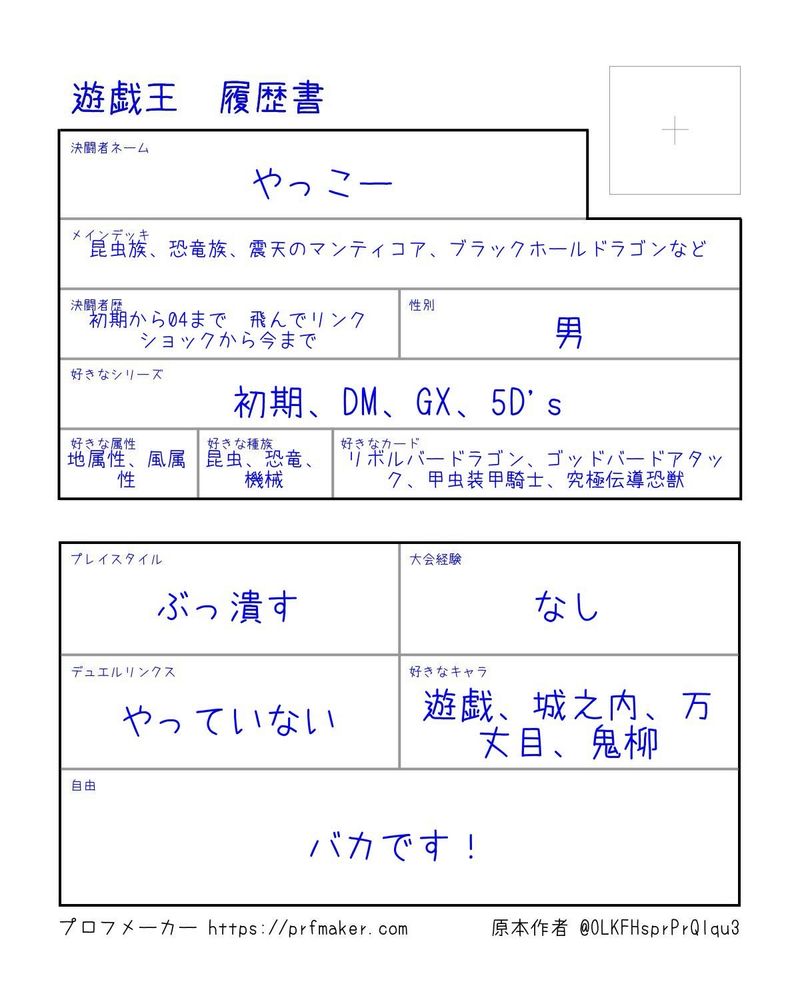 遊戯王　履歴書
決闘者ネーム
やっこー
メインデッキ
昆虫族、恐竜族、震天のマンティコア、ブラックホールドラゴンなど
決闘者歴
初期から04まで　飛んでリンク
ショックから今まで
性別
男
好きなシリーズ
初期、DM、GX、5D's
好きな属性
地属性、風属
性
好きな種族
昆虫、恐竜、
機械
好きなカード
リボルバードラゴン、ゴッドバードアタッ
ク、甲虫装甲騎士、究極伝導恐獣
プレイスタイル
ぶっ潰す
大会経験
なし
デュエルリンクス
やっていない
好きなキャラ
遊戯、城之内、万
丈目、鬼柳
自由
バカです！
プロフメーカー https://prfmaker.com
原本作者 @OLKFHsprPrQlqu3